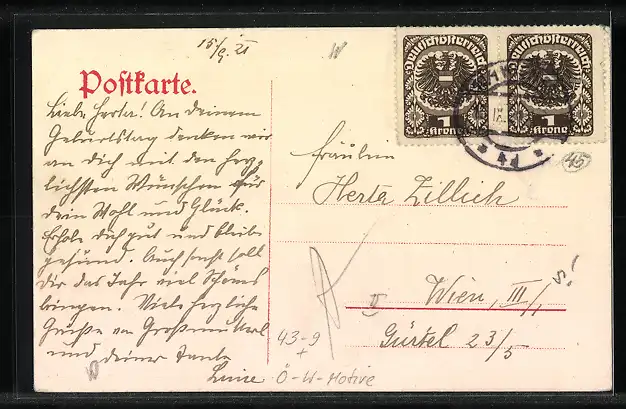 15/9. 21
Postkarte.
Liebe Herta! An deinem
Geburtstag denken wir
an dich mit den herz-
lichsten Wünschen für
dein Wohl und Glück.
Erhole dich gut und bleibe
gesund. Auch sonst soll
dir das Jahr viel Schönes
bringen. Viele herzliche
Grüße von Großmutterl
und deiner Tante
Luise
Deutschösterreich
1
Krone
Deutschösterreich
1
Krone
45
Fräulein
Herta Zillich
Wien, III/1
Gürtel 23/5
43-9
+
Ö-W-Motive